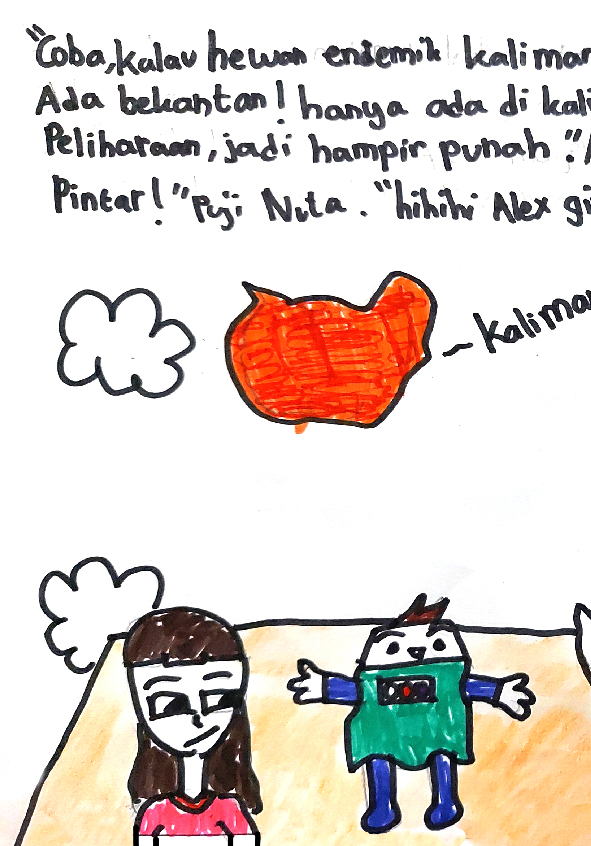 "Coba, kalau hewan endemik kaliman
Ada bekantan! hanya ada di kali
Peliharaan, jadi hampir punah."
Pintar!" Puji Nuta. "hihihi Alex gi
- Kaliman